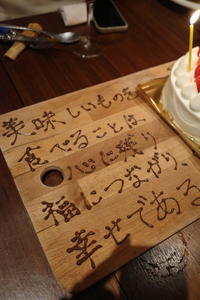 美味しいものを
食べることは
心に残り
福につながり
幸せである